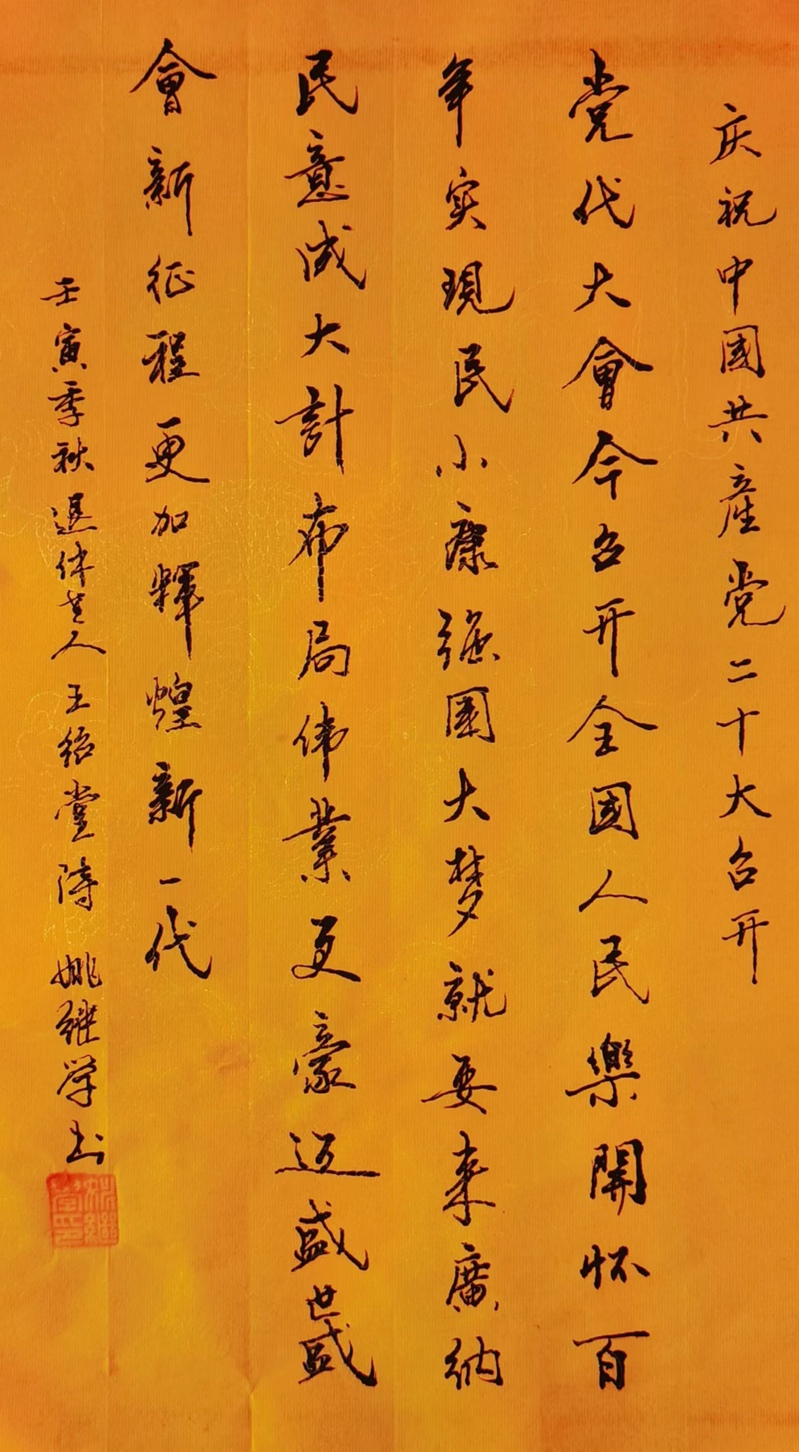 庆祝中國共產党二十大召开
党代大會今召开全國人民樂開怀百
年实現民小康強國大梦就要来廣纳
民意成大計布局伟業更豪迈盛世盛
會新征程更加輝煌新一代
壬寅季秋退休老人王绍堂诗 姚继学书